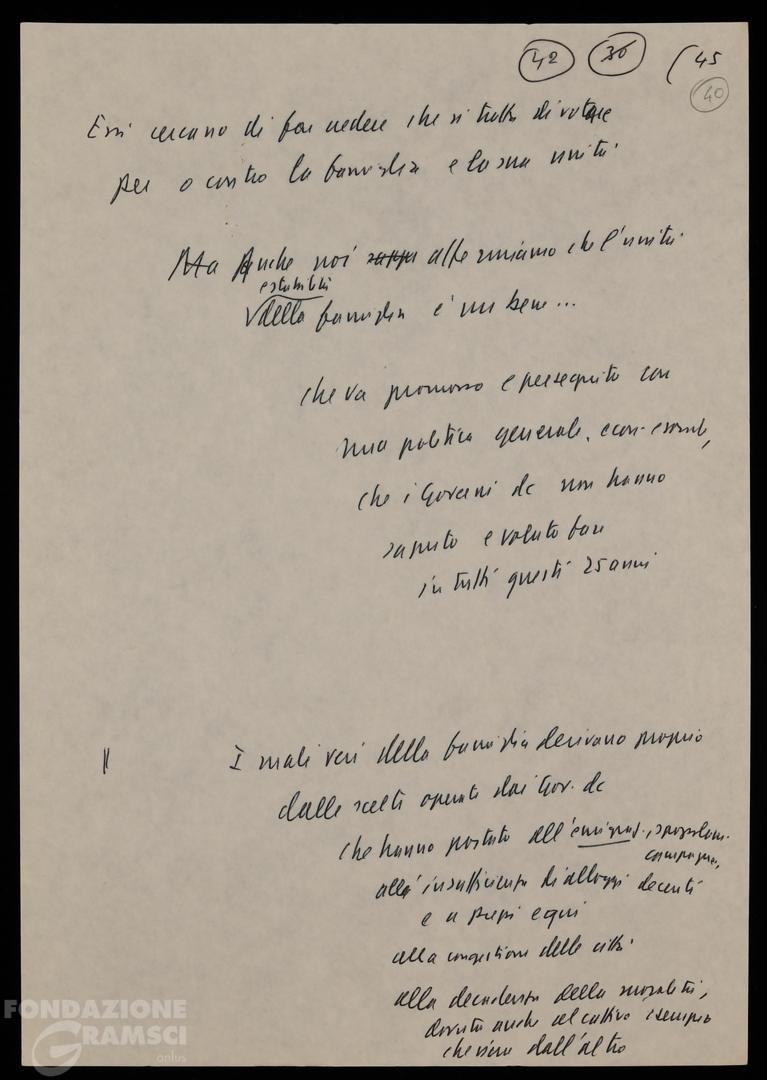 42 36 (45
40
Essi cercano di far vedere che si tratta di votare
per o contro la famiglia e la sua unità.
Ma Anche noi affermiamo che l'unità
e stabilità
della famiglia è un bene...
che va promosso e perseguito con
una politica generale, econ. e social,
che i Governi dc non hanno
saputo e voluto fare
in tutti questi 25 anni
|| I mali veri della famiglia derivano proprio
dalle scelte operate dai Gov. dc
che hanno portato all'emigraz., spopolam.
campagne,
alla insufficienza di alloggi decenti
e a prezzi equi
alla congestione delle città
alla decadenza della moralità,
dovuta anche al cattivo esempio
che viene dall'alto
FONDAZIONE
GRAMSCI
onlus